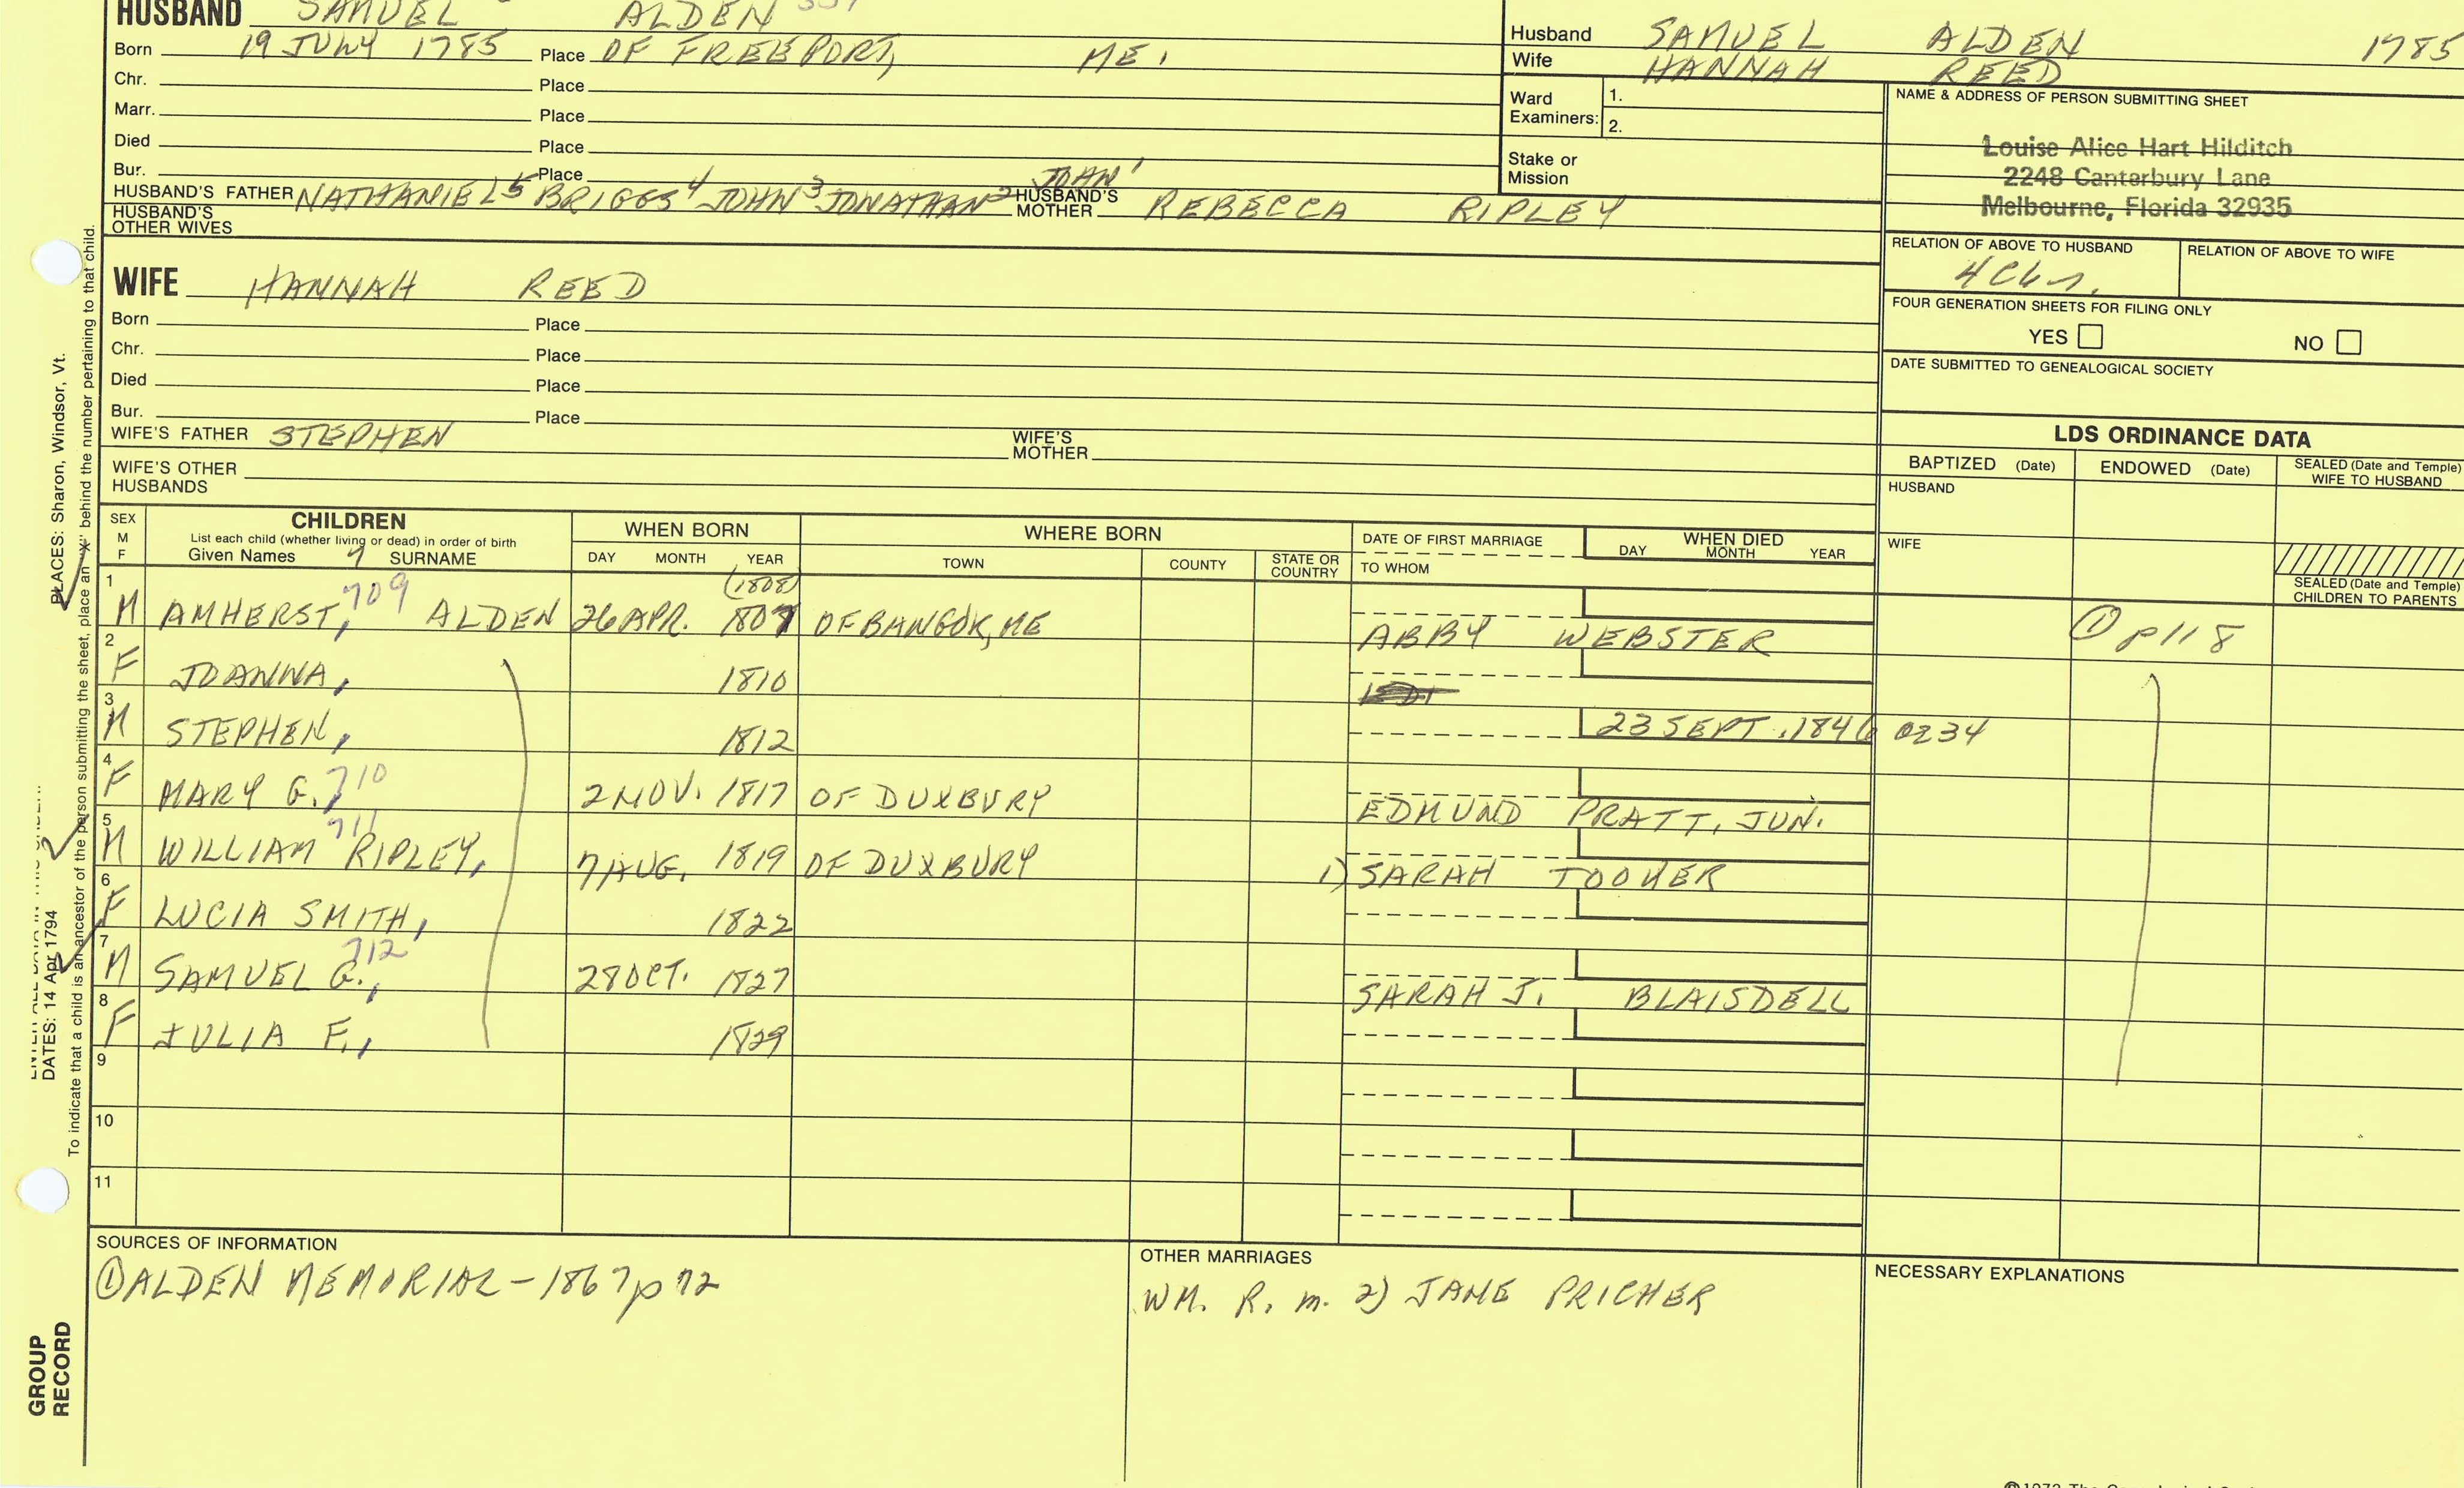 HUSBAND SAMUEL ALDEN
Born 19 JULY 1785 Place OF FREEPORT, ME.
Chr. Place
Marr. Place
Died Place
Bur. Place
HUSBAND'S FATHER NATHANIEL5 BRIGGS4 JOHN3 JONATHAN2 JOHN1 HUSBAND'S MOTHER REBECCA RIPLEY
HUSBAND'S OTHER WIVES
WIFE HANNAH REED
Born Place
Chr. Place
Died Place
Bur. Place
WIFE'S FATHER STEPHEN WIFE'S MOTHER
WIFE'S OTHER HUSBANDS
Husband SAMUEL ALDEN 1785
Wife HANNAH REED
Ward Examiners: 1.
2.
Stake or Mission
NAME & ADDRESS OF PERSON SUBMITTING SHEET
Louise Alice Hart Hilditch
2248 Canterbury Lane
Melbourne, Florida 32935
RELATION OF ABOVE TO HUSBAND RELATION OF ABOVE TO WIFE
FOUR GENERATION SHEETS FOR FILING ONLY
YES NO
DATE SUBMITTED TO GENEALOGICAL SOCIETY
LDS ORDINANCE DATA
BAPTIZED (Date) ENDOWED (Date) SEALED (Date and Temple) WIFE TO HUSBAND
HUSBAND
WIFE
SEALED (Date and Temple) CHILDREN TO PARENTS
SEX M F
CHILDREN
List each child (whether living or dead) in order of birth
Given Names 7 SURNAME
WHEN BORN
DAY MONTH YEAR
WHERE BORN
TOWN COUNTY STATE OR COUNTRY
DATE OF FIRST MARRIAGE
TO WHOM
WHEN DIED
DAY MONTH YEAR
1 M AMHERST, 709 ALDEN 26 APR. 1807 (1808) OF BANGOR, ME ABBY WEBSTER ① p118
2 F JOANNA, 1810
3 M STEPHEN, 1812 23 SEPT. 1846 0234
4 F MARY G. 710 2 NOV. 1817 OF DUXBURY EDMUND PRATT, JUN.
5 M WILLIAM RIPLEY, 711 7 AUG. 1819 OF DUXBURY 1) SARAH TOOKER
6 F LUCIA SMITH, 1822
7 M SAMUEL G., 712 28 OCT. 1827 SARAH J. BLAISDELL
8 F JULIA F., 1829
9
10
11
SOURCES OF INFORMATION
① ALDEN MEMORIAL - 1867 p 72
OTHER MARRIAGES
WM. R. m. 2) JANE PRICHER
NECESSARY EXPLANATIONS
PLACES: Sharon, Windsor, Vt.
DATES: 14 Apr 1794
To indicate that a child is an ancestor of the person submitting the sheet, place an "X" behind the number pertaining to that child.
GROUP
RECORD